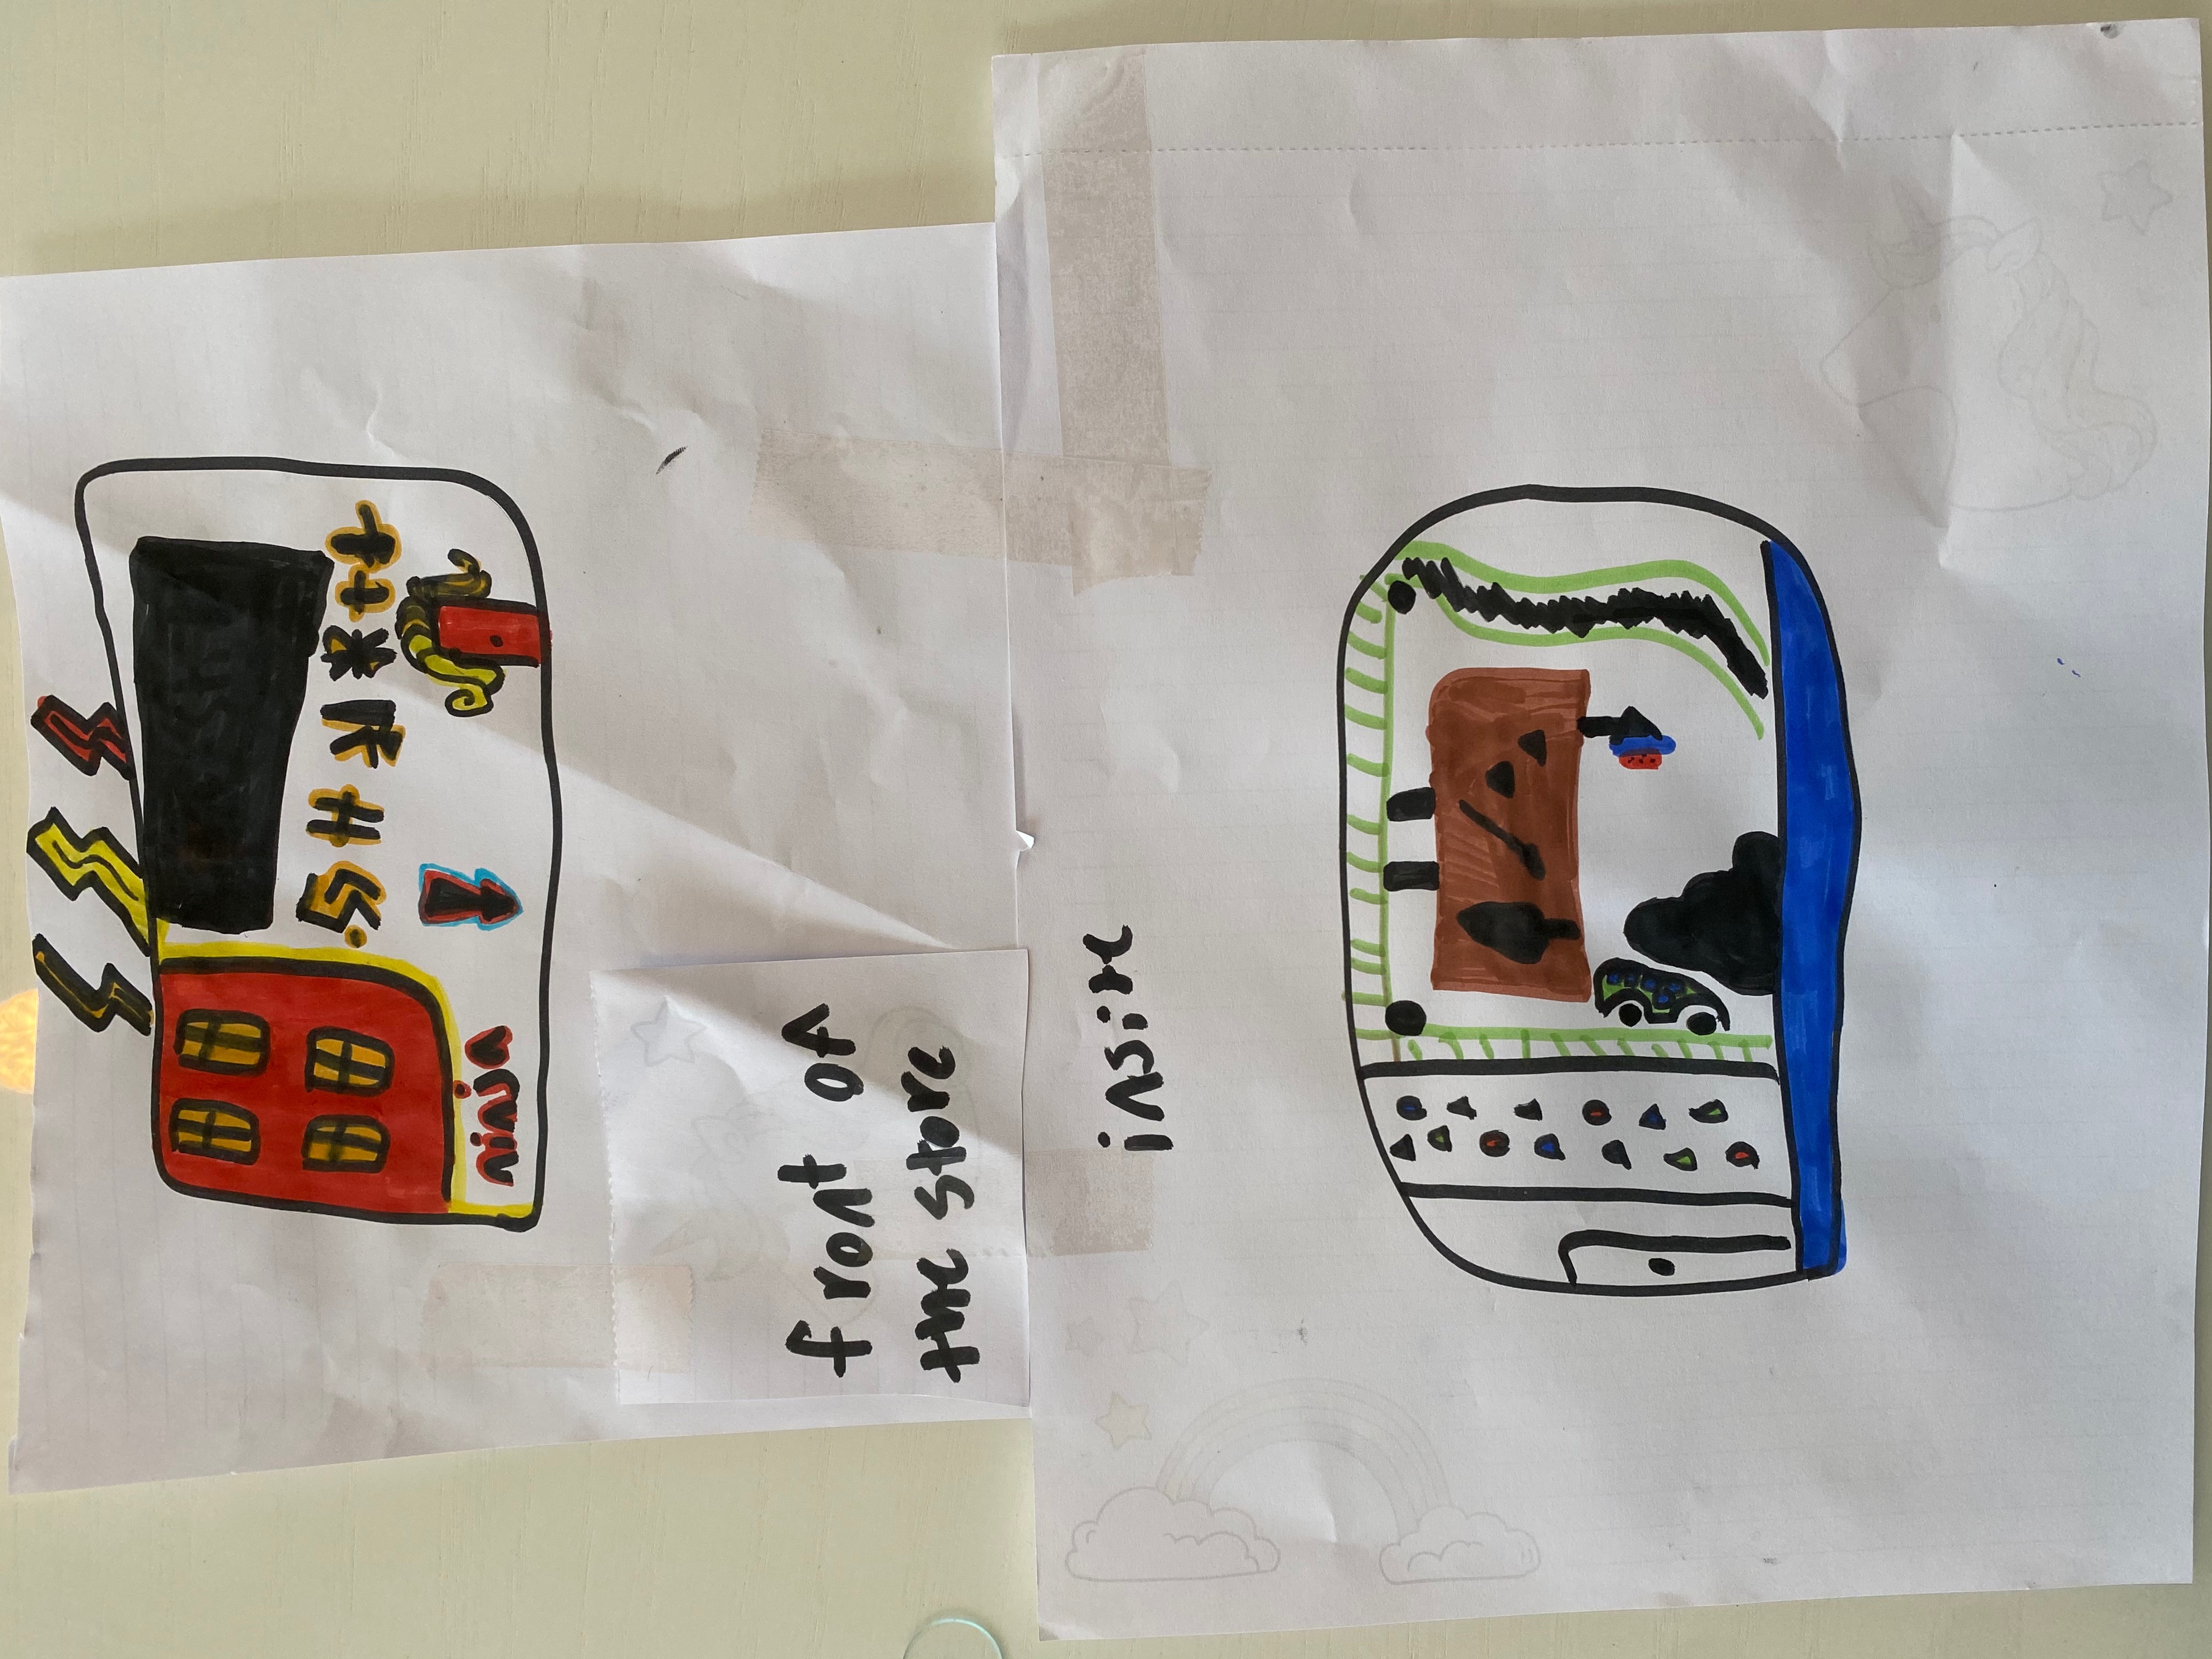 ninja
front of
the store
insite